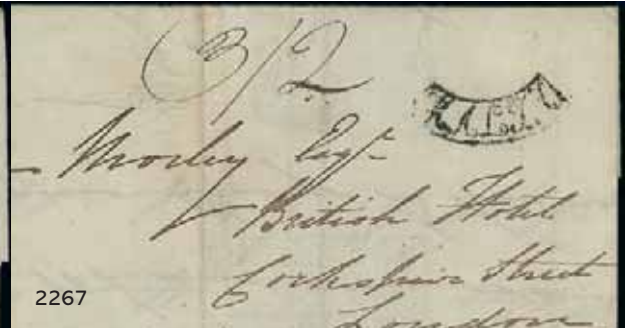 3/2
Morley Esqr
British Hotel
Street
London
2267